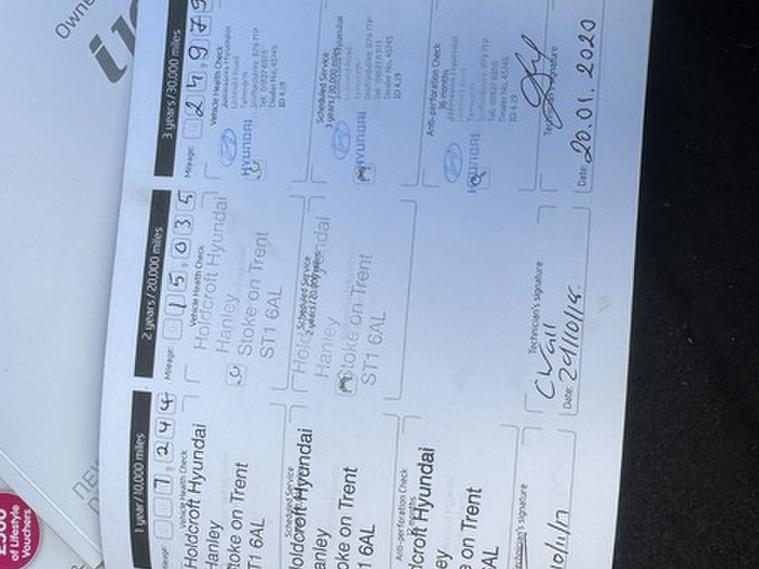 Owne
i10
£500
of Lifestyle
Vouchers
1 year/10,000 miles
Mileage: 7,244
Vehicle Health Check
Holdcroft Hyundai
Hanley
toke on Trent
T1 6AL
Scheduled Service
oldcroft Hyundai
anley
oke on Trent
1 6AL
Anti-perforation Check
12 months
dcroft Hyundai
ey
e on Trent
AL
Technician's signature
10/11/17
2 years/20,000 miles
Mileage: 15,035
Vehicle Health Check
Holdcroft Hyundai
Hanley
Stoke on Trent
ST1 6AL
Scheduled Service
2 years/20,000 miles
Hanley
Stoke on Trent
ST1 6AL
Technician's signature
C Wall
Date: 29/10/18
3 years/30,000 miles
Mileage: 24,979
Vehicle Health Check
HYUNDAI
Tamworth
Staffordshire B79 7TP
Dealer No. 45745
ID 4.19
Scheduled Service
3 years/30,000 miles
HYUNDAI
Tamworth
Staffordshire B79 7TP
Dealer No. 45745
ID 4.19
Anti-perforation Check
36 months
HYUNDAI
Tamworth
Staffordshire B79 7TP
Dealer No. 45745
ID 4.19
Technician's signature
Date: 20.01.2020